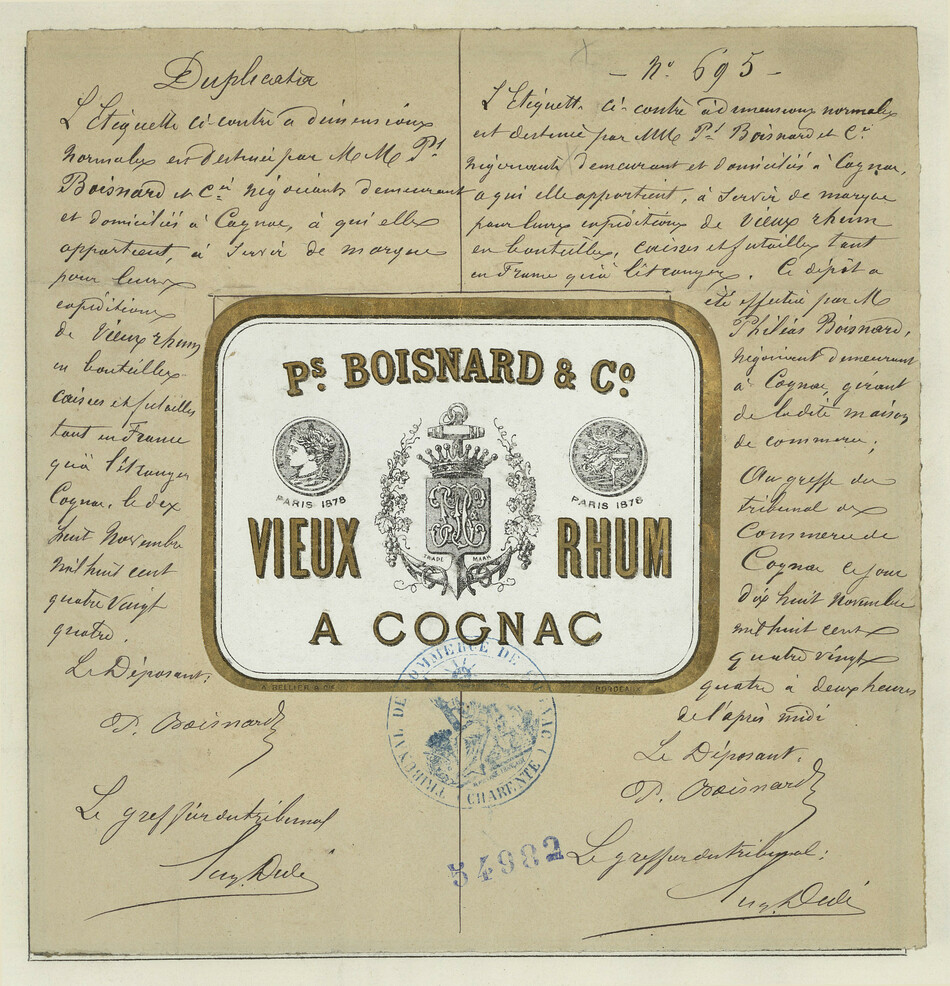 Duplicata
L'Etiquette ci-contre a dimensions
normales est destinée par M M Ps
Boisnard et Cie négociants demeurant
et domiciliés à Cognac, à qui elle
appartient, à servir de marque
pour leurs
expéditions
de vieux rhum
en bouteilles
caisses et futailles
tant en France
qu'à l'étranger
Cognac, le dix
huit Novembre
mil huit cent
quatre vingt
quatre.
Le Déposant:
P. Boisnard
Le greffier du tribunal
- No 695 -
L'Etiquette ci-contre à dimensions normales
est destinée par MM Ps Boisnard et Cie
négociants demeurant et domiciliés à Cognac,
a qui elle appartient, à servir de marque
pour leurs expéditions de vieux rhum
en bouteilles, caisses et futailles tant
en France qu'à l'étranger. Ce dépôt a
été effectué par M
Philéas Boisnard,
négociant demeurant
à Cognac, gérant
de ladite maison
de commerce.
Au greffe du
tribunal de
Commerce de
Cognac ce jour
dix huit Novembre
mil huit cent
quatre vingt
quatre à deux heures
de l'après midi
Le Déposant.
P. Boisnard
Le greffier du tribunal:
Ps. BOISNARD & Co.
PARIS 1878
PARIS 1878
VIEUX RHUM
TRADE MARK
A COGNAC
A. BELLIER & Cie BORDEAUX
TRIBUNAL DE COMMERCE DE COGNAC
CHARENTE
54982